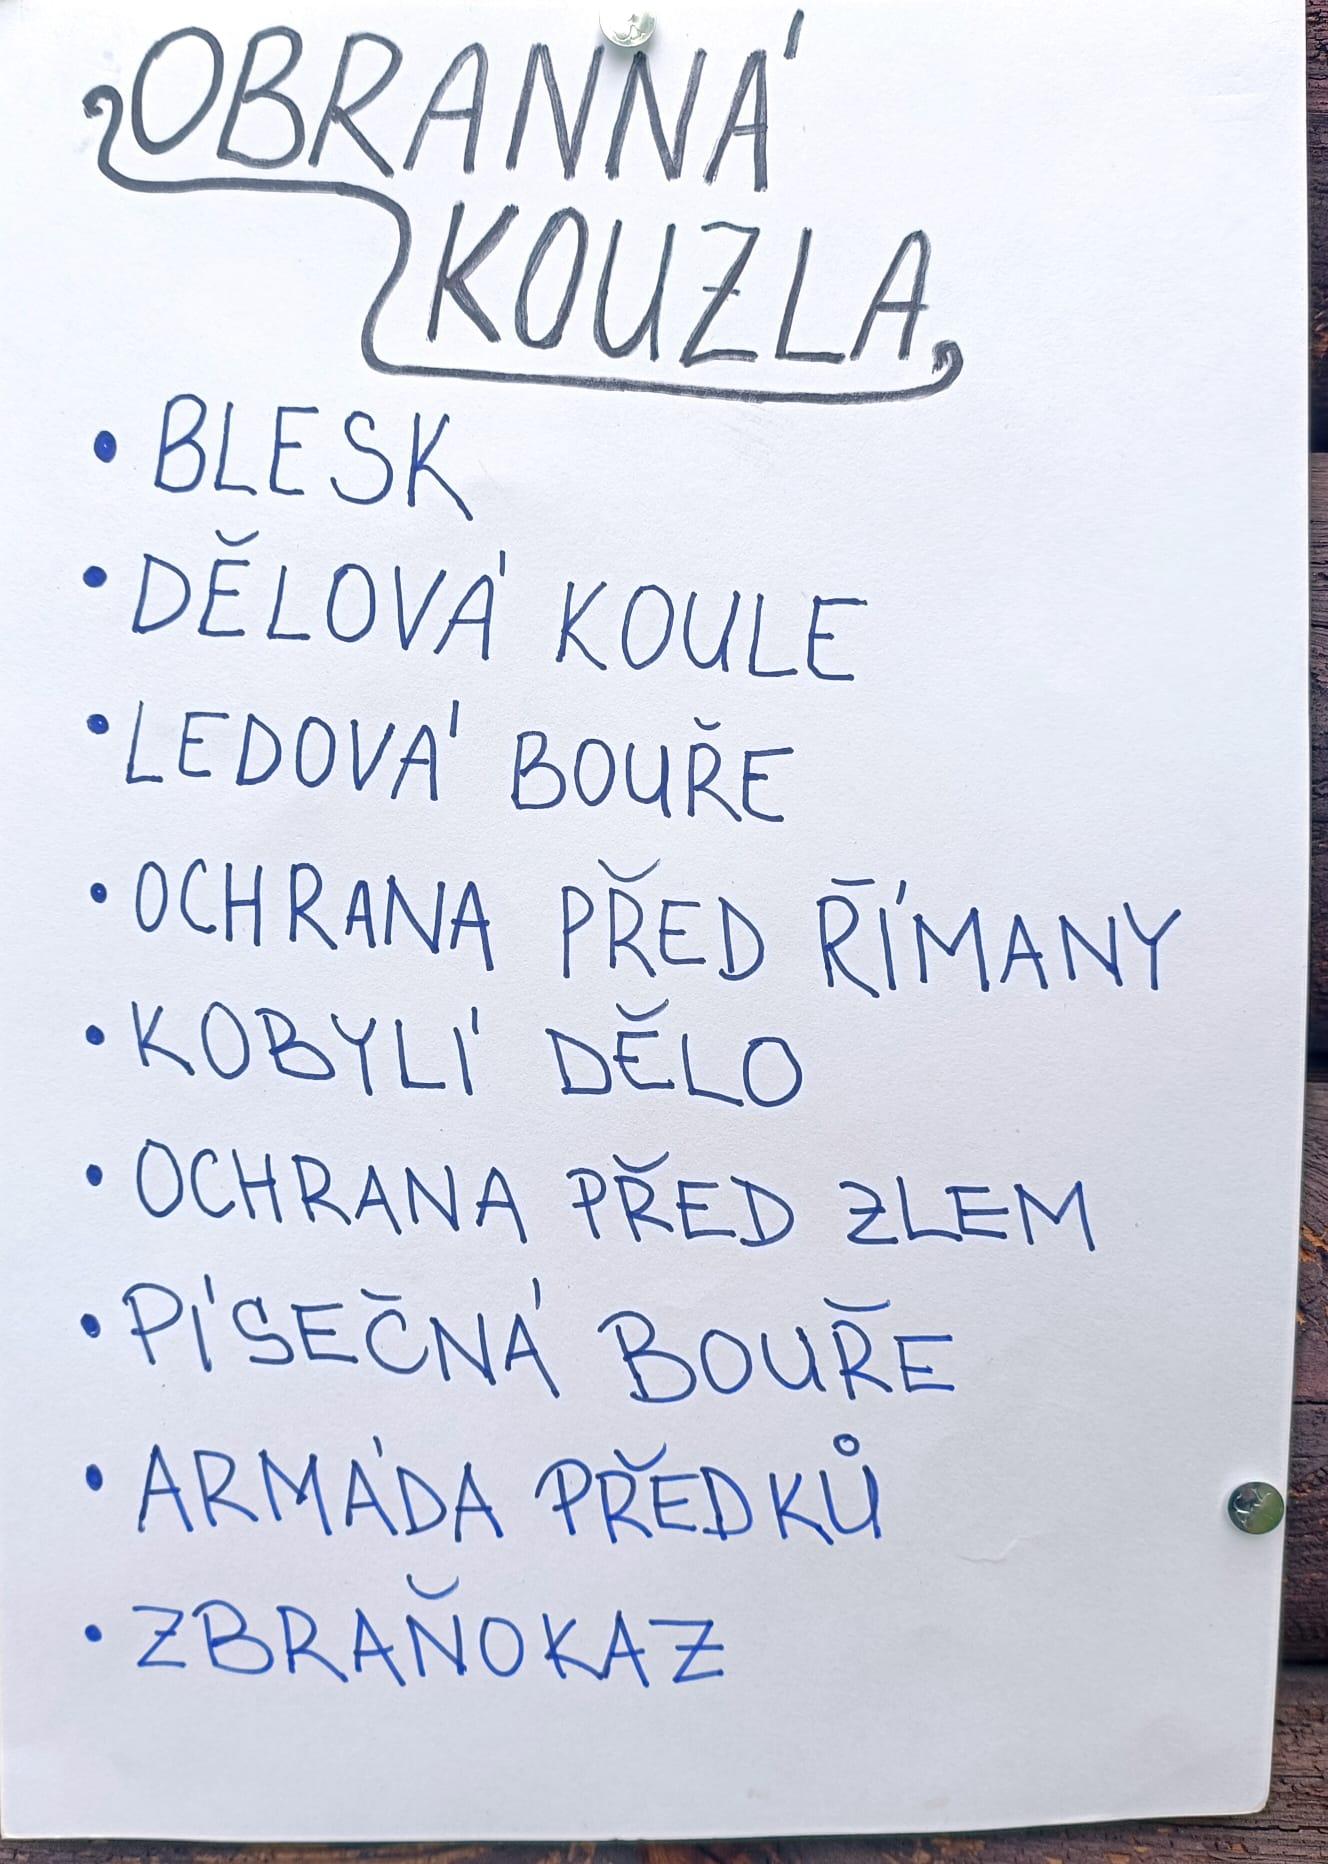 OBRANNÁ
KOUZLA
• BLESK
• DĚLOVÁ KOULE
• LEDOVÁ BOUŘE
• OCHRANA PŘED ŘÍMANY
• KOBYLÍ DĚLO
• OCHRANA PŘED ZLEM
• PÍSEČNÁ BOUŘE
• ARMÁDA PŘEDKŮ
• ZBRAŇOKAZ